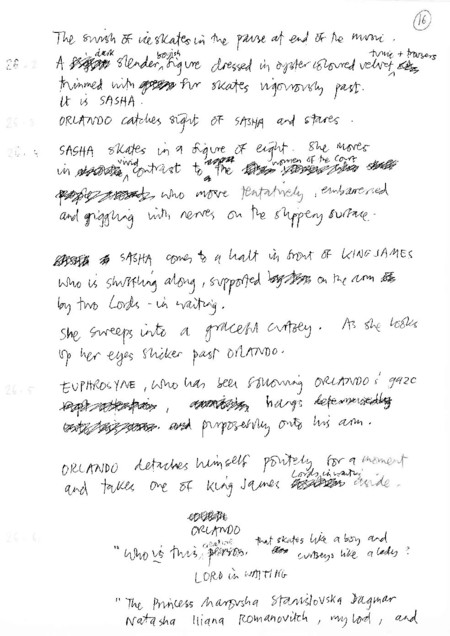 16
The swish of ice skates in the pause at end of the music.
A dark slender, boyish figure dressed in oyster coloured velvet tunic + trousers
trimmed with fur skates vigorously past.
It is SASHA.
ORLANDO catches sight of SASHA and stares.
SASHA skates in a figure of eight. She moves
in vivid contrast to the women of the court
who move tentatively, embarrassed
and giggling with nerves on the slippery surface.
SASHA comes to a halt in front of KING JAMES
who is shuffling along, supported on the arm
by two Lords-in waiting.
She sweeps into a graceful curtsey. As she looks
up her eyes flicker past ORLANDO.
EUPHROSYNE, who has been following ORLANDO's gaze
, hangs
purposefully onto his arm.
ORLANDO detaches himself politely for a moment
and takes one of King James Lords in waiting aside.
ORLANDO
"Who is this person that skates like a boy and
curtseys like a lady?
LORD in WAITING
"The Princess Marousha Stanislovska Dagmar
Natasha Iliana Romanovitch, my lord, and